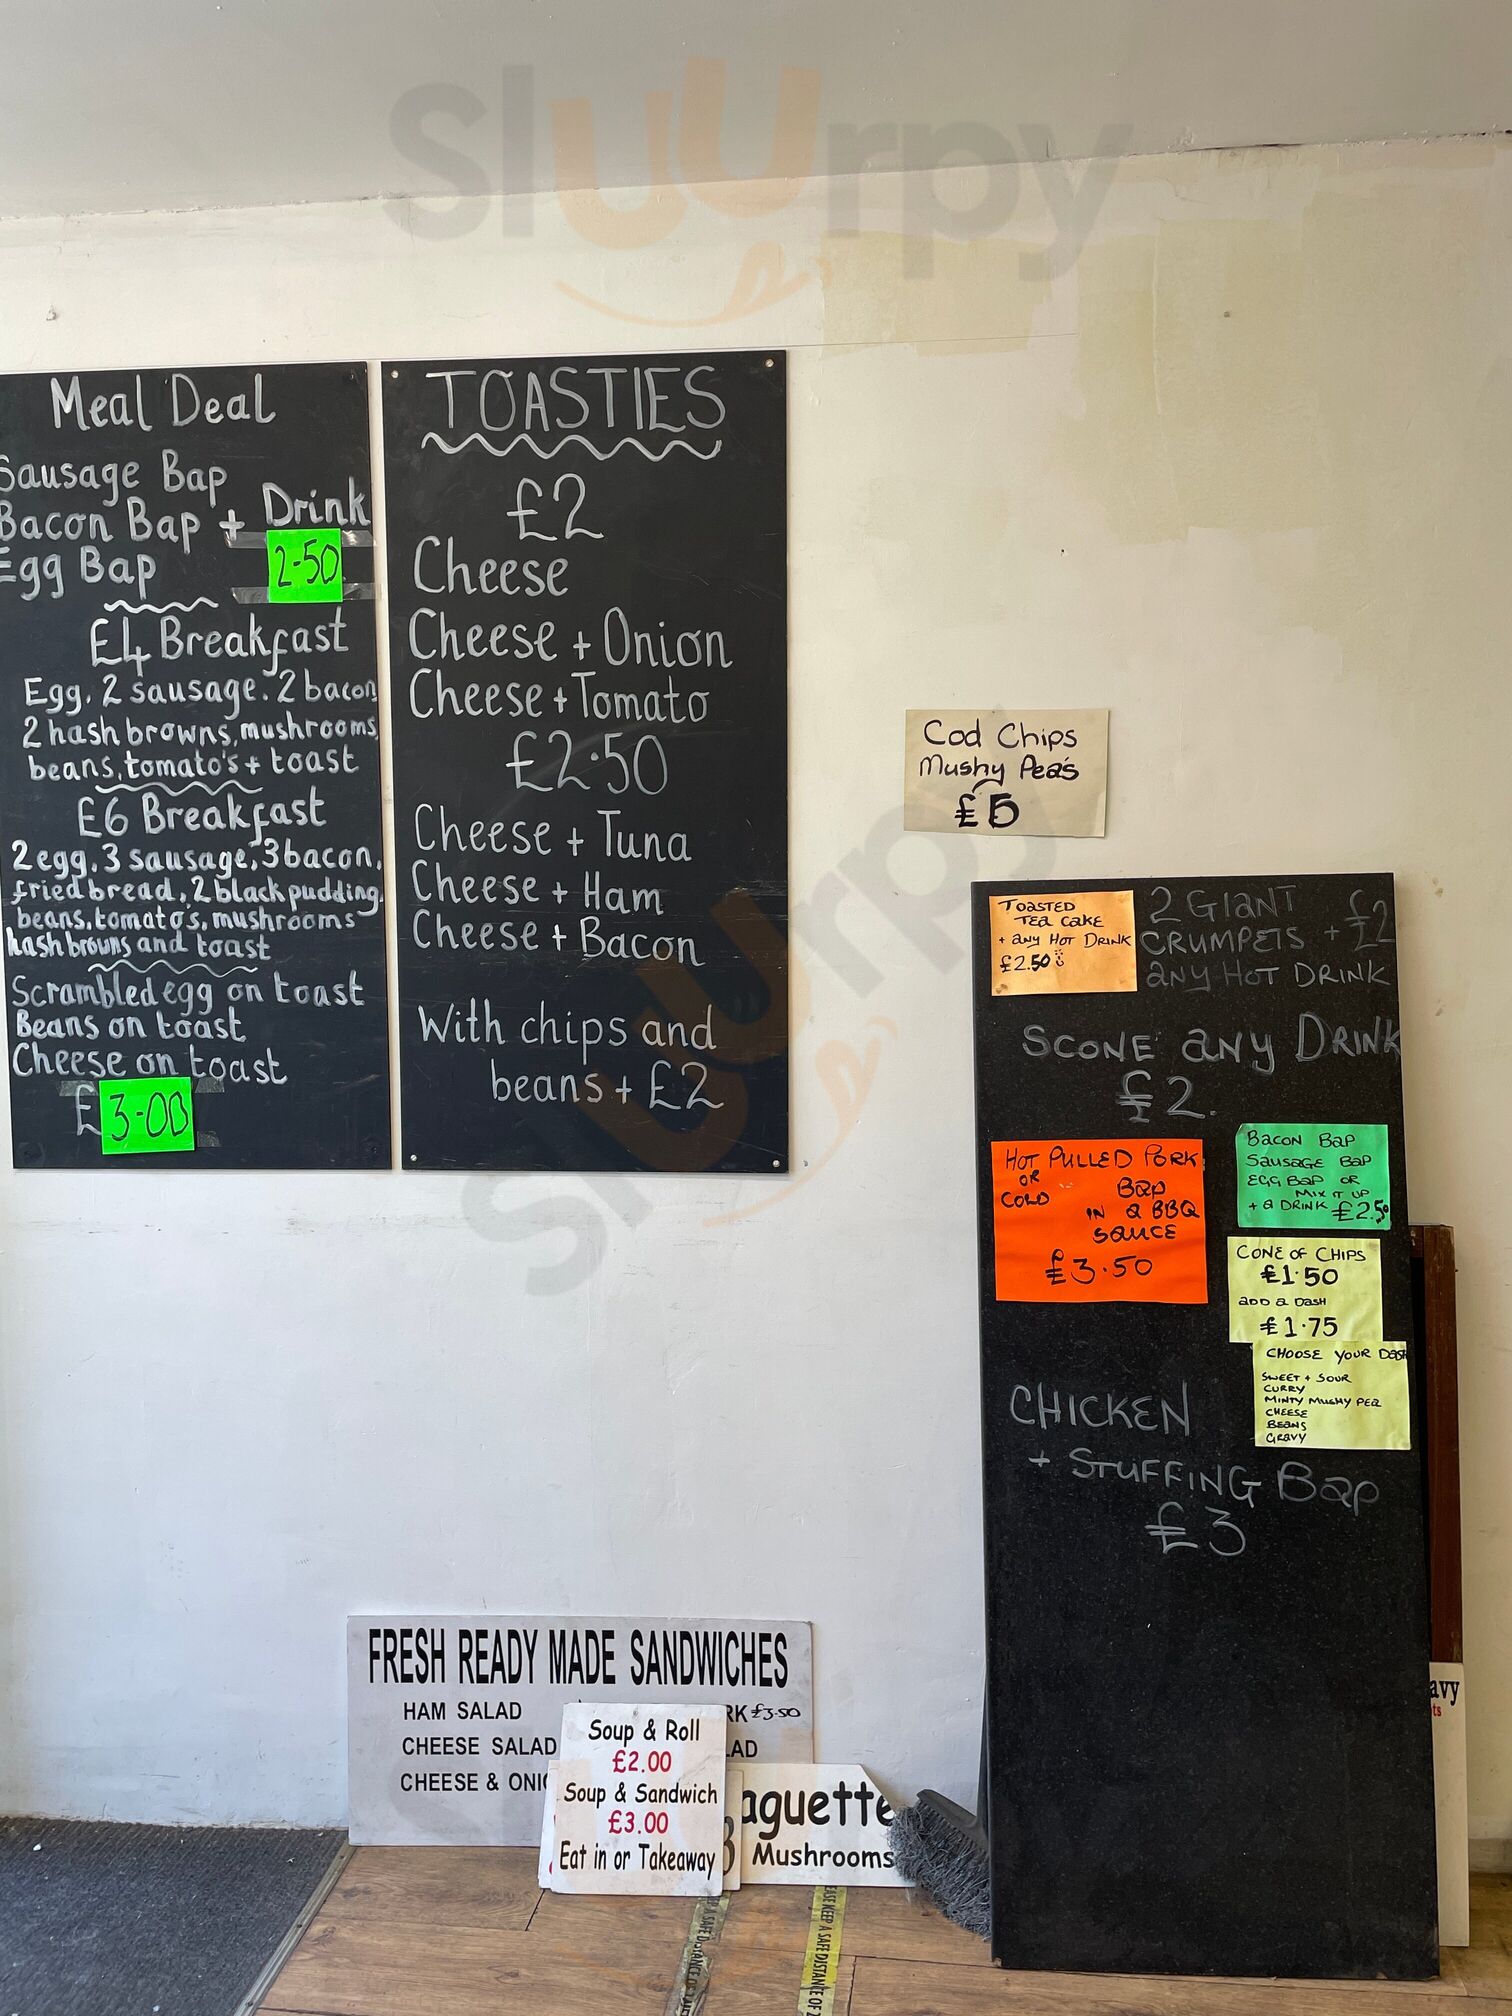 Sluurpy
Meal Deal
Sausage Bap
Bacon Bap + Drink
Egg Bap
2-50
£4 Breakfast
Egg, 2 sausage. 2 bacon
2 hash browns, mushrooms,
beans, tomato's + toast
£6 Breakfast
2 egg, 3 sausage, 3 bacon,
fried bread, 2 black pudding,
beans, tomato's, mushrooms
hash browns and toast
Scrambled egg on toast
Beans on toast
Cheese on toast
£3-00
TOASTIES
£2
Cheese
Cheese + Onion
Cheese + Tomato
£2.50
Cheese + Tuna
Cheese + Ham
Cheese + Bacon
With chips and
beans + £2
Cod Chips
Mushy Pea's
£5
TOASTED
TEA CAKE
+ any HOT DRINK
£2.50
2 GIANT £2
CRUMPETS + £2
any HOT DRINK
SCONE any DRINK
£2.
HOT PULLED PORK
OR
COLD BAP
IN a BBQ
SAUCE
£3.50
BACON BAP
SAUSAGE BAP
EGG BAP OR
MIX IT UP
+ a DRINK £2.50
CONE OF CHIPS
£1.50
ADD a DASH
£1.75
CHOOSE YOUR DASH
SWEET + SOUR
CURRY
MINTY MUSHY PEA
CHEESE
BEANS
GRAVY
CHICKEN
+ STUFFING BAP
£3
Sluurpy
FRESH READY MADE SANDWICHES
HAM SALAD
RK £3.50
CHEESE SALAD
LAD
CHEESE & ONIO
Soup & Roll
£2.00
Soup & Sandwich
£3.00
Eat in or Takeaway
aguette
Mushrooms
avy
ts
A SAFE DISTANCE OF
EASE KEEP A SAFE DISTANCE OF 2